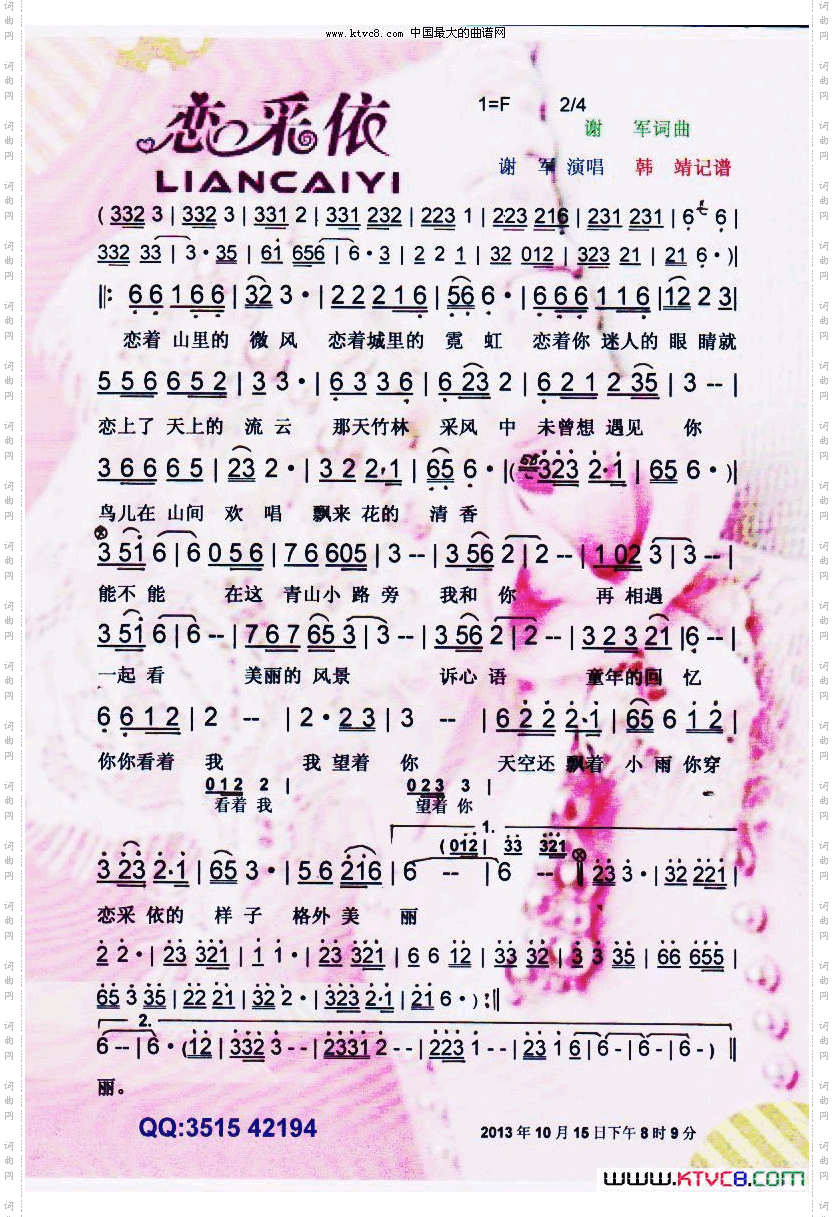 www.ktvc8.com 中国最大的曲谱网
恋采依
LIANCAIYI
1=F 2/4
谢 军词曲
谢 军 演唱 韩 靖记谱
( 332 3 | 332 3 | 331 2 | 331 232 | 223 1 | 223 216 | 231 231 | 6 6 |
332 33 | 3 · 35 | 61 656 | 6 · 3 | 2 2 1 | 32 012 | 323 21 | 21 6 · )|
‖: 6 6 1 6 6 | 32 3 · | 2 2 2 1 6 | 56 6 · | 6 6 6 1 1 6 | 12 2 3|
恋着 山里的 微 风 恋着城里的 霓 虹 恋着你 迷人的 眼 睛就
5 5 6 6 5 2 | 3 3 · | 6 3 3 6 | 6 23 2 | 6 2 1 2 35 | 3 -- |
恋上了 天上的 流 云 那天竹林 采风 中 未曾想 遇见 你
3 6 6 6 5 | 23 2 · | 3 2 2·1 | 65 6 · |( 323 2·1 | 65 6 · )|
鸟儿在 山间 欢 唱 飘来 花的 清 香
3 51 6 | 6 0 5 6 | 7 6 605 | 3 -- | 3 56 2 | 2 -- | 1 02 3 | 3 -- |
能不 能 在这 青山小 路 旁 我和 你 再 相遇
3 51 6 | 6 -- | 7 6 7 65 3 | 3 -- | 3 56 2 | 2 -- | 3 2 3 21 |6 -- |
一起 看 美丽的 风景 诉心 语 童年的回 忆
6 6 1 2 | 2 -- | 2 · 2 3 | 3 -- | 6 2 2 2·1 | 65 6 1 2 |
你你看着 我 我 望着 你 天空还 飘着 小 雨 你穿
0 1 2 2 | 0 2 3 3 |
看着 我 望着 你
1.
( 012 | 33 321
3 23 2·1 | 65 3 · | 5 6 216 | 6 -- | 6 -- ‖ 23 3 · | 32 221 |
恋采 依的 样 子 格外 美 丽
2 2 · | 23 321 | 1 1 · | 23 321 | 6 6 12 | 33 32 | 3 3 35 | 66 655 |
65 3 35 | 22 21 | 32 2 · | 323 2·1 | 21 6 · ) :‖
2.
6 -- | 6 · (12 | 332 3 -- | 2331 2 -- | 223 1 -- | 23 1 6 | 6 - | 6 - | 6 - ) ‖
丽。
QQ:3515 42194
2013 年 10 月 15 日下午 8 时 9 分
www.KTVC8.com